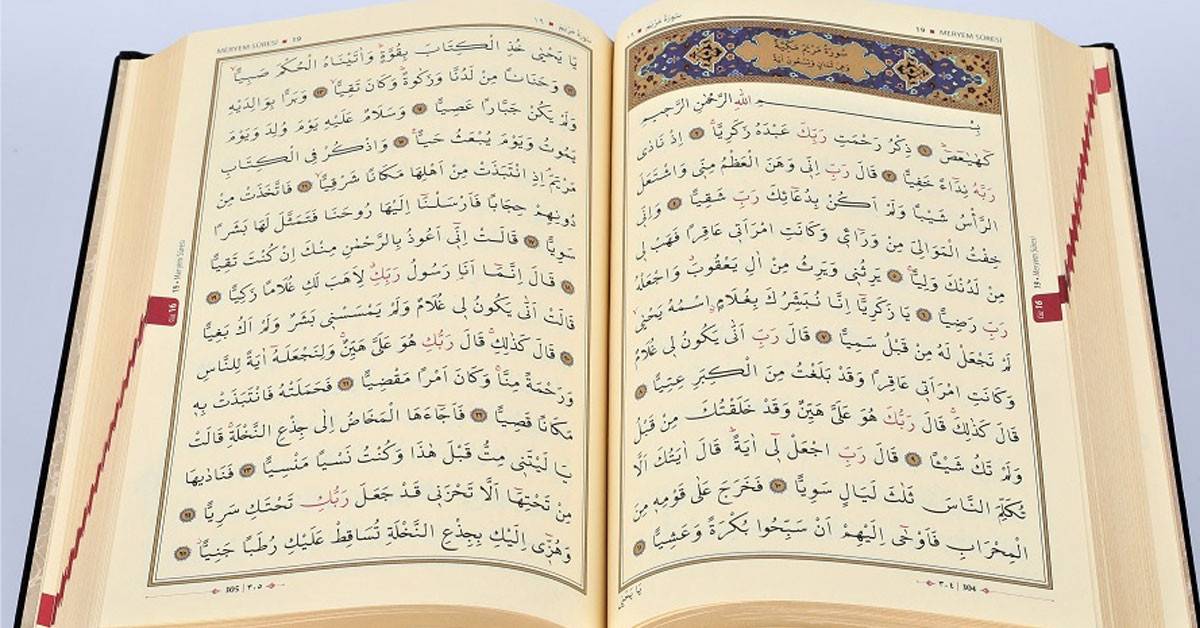 سورة مريم ١٩
19 MERYEM SÛRESİ
سُورَةُ مَرْيَمَ مَكِّيَّةٌ
وَهِيَ ثَمَانٍ وَتِسْعُونَ آيَةً
بِسْمِ اللهِ الرَّحْمٰنِ الرَّحِيمِ
كٓهٰيٰعٓصٓ ۚ ﴿١﴾ ذِكْرُ رَحْمَتِ رَبِّكَ عَبْدَهُ زَكَرِيَّاۚ ﴿٢﴾ اِذْ نَادٰى
رَبَّهُ نِدَٓاءً خَفِيًّا ﴿٣﴾ قَالَ رَبِّ اِنّٖى وَهَنَ الْعَظْمُ مِنّٖى وَاشْتَعَلَ
الرَّأْسُ شَيْبًا وَلَمْ اَكُنْ بِدُعَٓائِكَ رَبِّ شَقِيًّا ﴿٤﴾ وَاِنّٖى
خِفْتُ الْمَوَالِىَ مِنْ وَرَٓاءٖى وَكَانَتِ امْرَاَتٖى عَاقِرًا فَهَبْ لٖى
مِنْ لَدُنْكَ وَلِيًّاۙ ﴿٥﴾ يَرِثُنٖى وَيَرِثُ مِنْ اٰلِ يَعْقُوبَۗ وَاجْعَلْهُ
رَبِّ رَضِيًّا ﴿٦﴾ يَا زَكَرِيَّٓا اِنَّا نُبَشِّرُكَ بِغُلَامٍۨ اسْمُهُ يَحْيٰىۙ
لَمْ نَجْعَلْ لَهُ مِنْ قَبْلُ سَمِيًّا ﴿٧﴾ قَالَ رَبِّ اَنّٰى يَكُونُ لٖى غُلَامٌ
وَكَانَتِ امْرَاَتٖى عَاقِرًا وَقَدْ بَلَغْتُ مِنَ الْكِبَرِ عِتِيًّا ﴿٨﴾
قَالَ كَذٰلِكَۚ قَالَ رَبُّكَ هُوَ عَلَىَّ هَيِّنٌ وَقَدْ خَلَقْتُكَ مِنْ قَبْلُ
وَلَمْ تَكُ شَيْـًٔا ﴿٩﴾ قَالَ رَبِّ اجْعَلْ لٖٓى اٰيَةًۜ قَالَ اٰيَتُكَ اَلَّا
تُكَلِّمَ النَّاسَ ثَلٰثَ لَيَالٍ سَوِيًّا ﴿١٠﴾ فَخَرَجَ عَلٰى قَوْمِهٖ مِنَ
الْمِحْرَابِ فَاَوْحٰٓى اِلَيْهِمْ اَنْ سَبِّحُوا بُكْرَةً وَعَشِيًّا ﴿١١﴾
يَا يَحْيٰى
٣٠٤ | 304
19 • Meryem Sûresi
Cüz 16
سورة مريم ١٩
MERYEM SÛRESİ 19
يَا يَحْيٰى خُذِ الْكِتَابَ بِقُوَّةٍۜ وَاٰتَيْنَاهُ الْحُكْمَ صَبِيًّاۙ
﴿١٢﴾ وَحَنَانًا مِنْ لَدُنَّا وَزَكٰوةًۜ وَكَانَ تَقِيًّاۙ ﴿١٣﴾ وَبَرًّا بِوَالِدَيْهِ
وَلَمْ يَكُنْ جَبَّارًا عَصِيًّا ﴿١٤﴾ وَسَلَامٌ عَلَيْهِ يَوْمَ وُلِدَ وَيَوْمَ
يَمُوتُ وَيَوْمَ يُبْعَثُ حَيًّا۟ ﴿١٥﴾ وَاذْكُرْ فِى الْكِتَابِ
مَرْيَمَۢ اِذِ انْتَبَذَتْ مِنْ اَهْلِهَا مَكَانًا شَرْقِيًّاۙ ﴿١٦﴾ فَاتَّخَذَتْ مِنْ
دُونِهِمْ حِجَابًا فَاَرْسَلْنَٓا اِلَيْهَا رُوحَنَا فَتَمَثَّلَ لَهَا بَشَرًا
سَوِيًّا ﴿١٧﴾ قَالَتْ اِنّٖٓى اَعُوذُ بِالرَّحْمٰنِ مِنْكَ اِنْ كُنْتَ تَقِيًّا
﴿١٨﴾ قَالَ اِنَّمَٓا اَنَا۬ رَسُولُ رَبِّكِۗ لِاَهَبَ لَكِ غُلَامًا زَكِيًّا ﴿١٩﴾
قَالَتْ اَنّٰى يَكُونُ لٖى غُلَامٌ وَلَمْ يَمْسَسْنٖى بَشَرٌ وَلَمْ اَكُ بَغِيًّا
﴿٢٠﴾ قَالَ كَذٰلِكِۚ قَالَ رَبُّكِ هُوَ عَلَىَّ هَيِّنٌۚ وَلِنَجْعَلَهُٓ اٰيَةً لِلنَّاسِ
وَرَحْمَةً مِنَّاۚ وَكَانَ اَمْرًا مَقْضِيًّا ﴿٢١﴾ فَحَمَلَتْهُ فَانْتَبَذَتْ بِهٖ
مَكَانًا قَصِيًّا ﴿٢٢﴾ فَاَجَٓاءَهَا الْمَخَاضُ اِلٰى جِذْعِ النَّخْلَةِۚ قَالَتْ
يَا لَيْتَنٖى مِتُّ قَبْلَ هٰذَا وَكُنْتُ نَسْيًا مَنْسِيًّا ﴿٢٣﴾ فَنَادٰيهَا
مِنْ تَحْتِهَٓا اَلَّا تَحْزَنٖى قَدْ جَعَلَ رَبُّكِ تَحْتَكِ سَرِيًّا ﴿٢٤﴾
وَهُزّٖٓى اِلَيْكِ بِجِذْعِ النَّخْلَةِ تُسَاقِطْ عَلَيْكِ رُطَبًا جَنِيًّاۘ ﴿٢٥﴾
305 | ٣٠٥
19 • Meryem Sûresi
Cüz 16